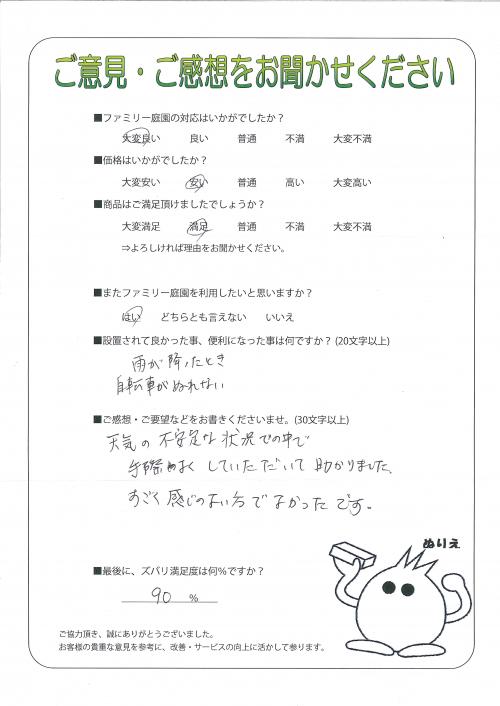 ご意見・ご感想をお聞かせください
■ファミリー庭園の対応はいかがでしたか？
大変良い 良い 普通 不満 大変不満
■価格はいかがでしたか？
大変安い 安い 普通 高い 大変高い
■商品はご満足頂けましたでしょうか？
大変満足 満足 普通 不満 大変不満
⇒よろしければ理由をお聞かせください。
■またファミリー庭園を利用したいと思いますか？
はい どちらとも言えない いいえ
■設置されて良かった事、便利になった事は何ですか？(20文字以上)
雨が降ったとき
自転車がぬれない
■ご感想・ご要望などをお書きくださいませ。(30文字以上)
天気の不安定な状況での中で
手際よくしていただいて助かりました、
すごく感じのよい方でよかったです。
ぬりえ
■最後に、ズバリ満足度は何％ですか？
90 %
ご協力頂き、誠にありがとうございました。
お客様の貴重な意見を参考に、改善・サービスの向上に活かして参ります。